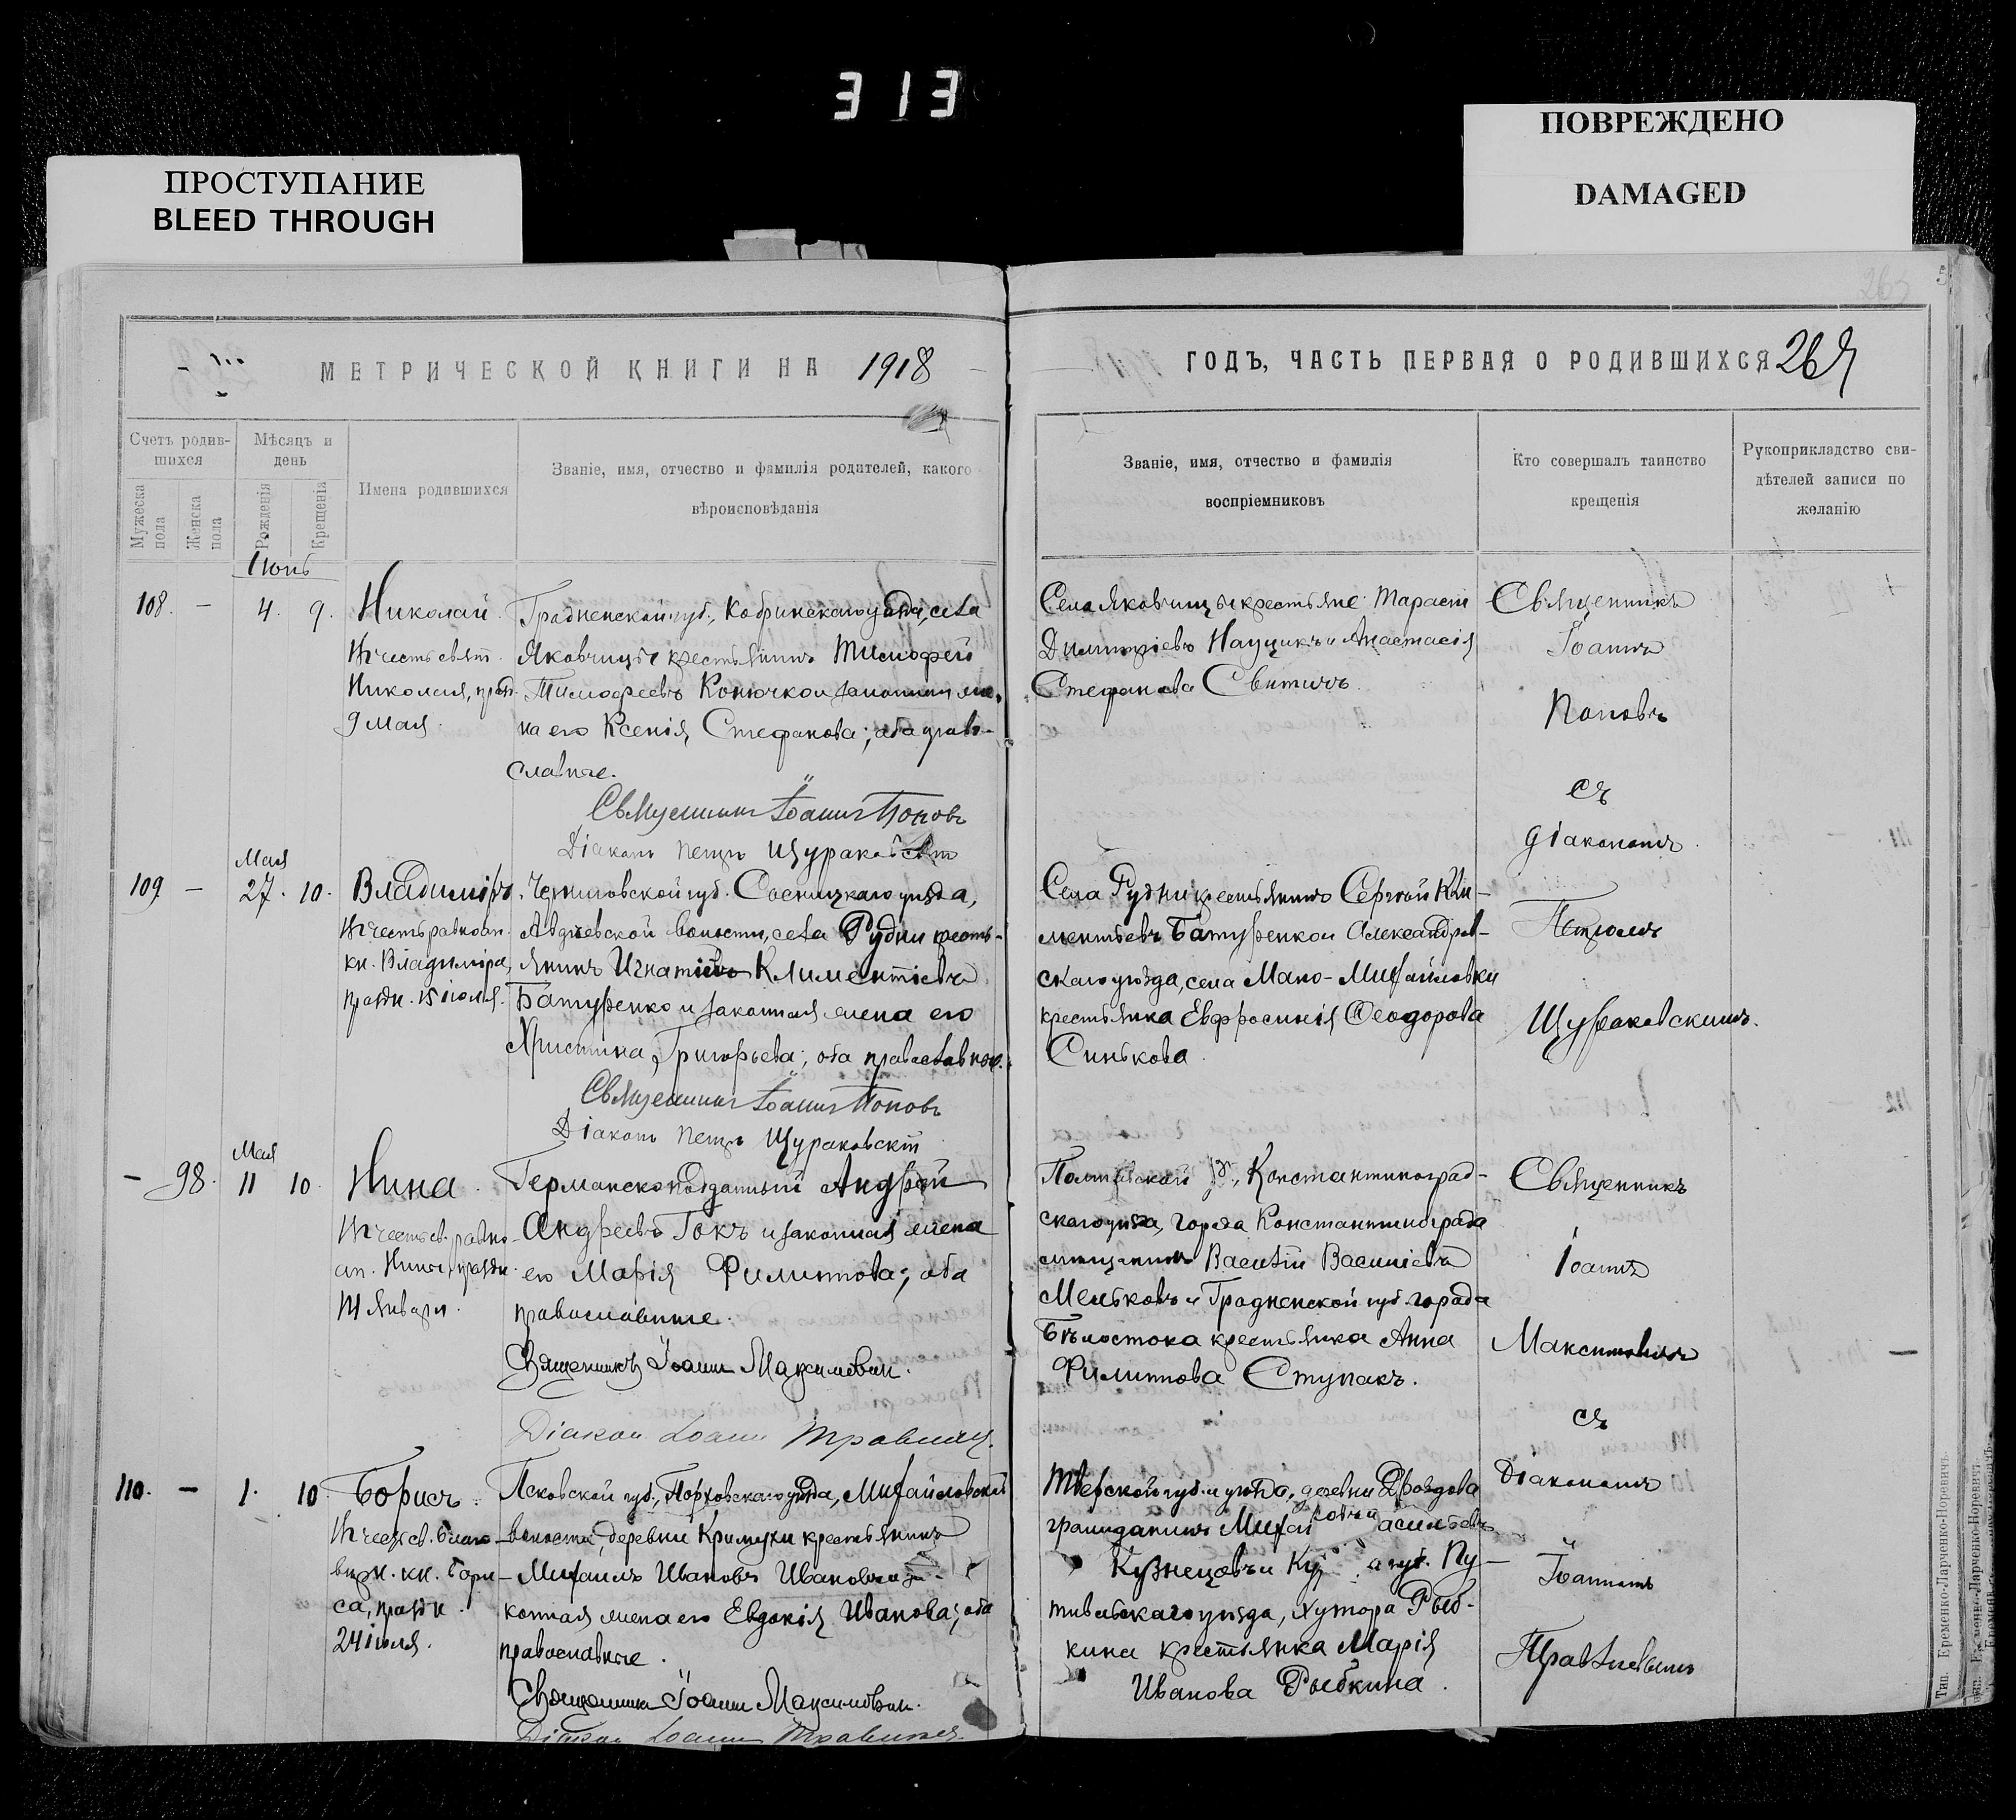 313
ПОВРЕЖДЕНО
DAMAGED
ПРОСТУПАНИЕ
BLEED THROUGH
МЕТРИЧЕСКОЙ КНИГИ НА 1918
ГОДЪ, ЧАСТЬ ПЕРВАЯ О РОДИВШИХСЯ
Счетъ родив-
шихся
Мужеска пола
Женска пола
Мѣсяцъ и
день
Рожденія
Крещенія
Имена родившихся
Званіе, имя, отчество и фамилія родителей, какого
вѣроисповѣданія
Званіе, имя, отчество и фамилія
воспріемниковъ
Кто совершалъ таинство
крещенія
Рукоприкладство сви-
дѣтелей записи по
желанію
Іюнь
108. - 4. 9.
Николай
Въ честь свят.
Николая, празд.
9 мая.
Гродненской губ., Кобринскаго уѣзда, села
Яковчицы крестьянинъ Тимофей
Тимофеевъ Конючко и законная же-
на его Ксенія Стефанова; оба право-
славные.
Священникъ Іоаннъ Поповъ
Діаконъ Петръ Щураковскій
Села Яковчицы крестьяне: Тарасій
Димитріевъ Нащикъ и Анастасія
Стефанова Свитичъ.
Священникъ
Іоаннъ
Поповъ
съ
діакономъ
Петромъ
Щураковскимъ.
Мая
109 - 27. 10.
Владиміръ.
Въ честь равноап.
кн. Владиміра,
праздн. 15 іюля.
Черниговской губ. Сосницкаго уѣзда,
Авдѣевской волости, села Рудни кресть-
янинъ Игнатій Климентіевъ
Батуренко и законная жена его
Христина Григорьева; оба православные.
Священникъ Іоаннъ Поповъ
Діаконъ Петръ Щураковскій
Села Рудни крестьянинъ Сергѣй Кли-
ментьевъ Батуренко и Александров-
скаго уѣзда, села Мало-Михайловки
крестьянка Евфросинія Ѳеодорова
Синькова.
Мая
- 98. 11 10.
Нина.
Въ честь св. равно-
ап. Нины, праздн.
14 января.
Германскоподданный Андрей
Андреевъ Гокъ и законная жена
его Марія Филиппова; оба
православные.
Священникъ Іоаннъ Максимовичъ.
Діаконъ Іоаннъ
Полтавской г., Константиноград-
скаго уѣзда, города Константинограда
мѣщанинъ Василій Василіевъ
Мельковъ и Гродненской губ. города
Бѣлостока крестьянка Анна
Филиппова Ступакъ.
Священникъ
Іоаннъ
Максимовичъ
съ
Діакономъ
Іоанномъ
110. - 1. 10.
Борисъ.
Въ честь св. благо-
вѣрн. кн. Бори-
са, праздн.
24 іюля.
Псковской губ., Порховскаго уѣзда, Михайловской
волости, деревни Кримухи крестьянинъ
Михаилъ Ивановъ Ивановъ и за-
конная жена его Евдокія Иванова; оба
православные.
Священникъ Іоаннъ Максимовичъ.
Діаконъ Іоаннъ
Тверской губ. и уѣзда, деревни Дроздова
гражданинъ
Кузнецовъ и губ. Пу-
тивльскаго уѣзда, хутора Рыб-
кина крестьянка Марія
Иванова Рыбкина.
Тип. Еременко-Ларченко-Норевичъ.